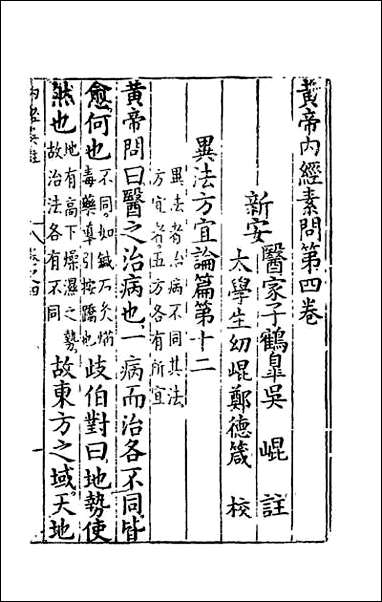 黃帝內經素問第四卷
新安
醫家子鶴皐吳崐註
太學生幼崐鄭德箴校
異法方宜論篇第十二
異法者治病不同其法
方宜者五方各有所宜
黃帝問曰醫之治病也一病而治各不同皆
愈何也
不同如鍼石灸焫
毒藥導引按蹻也
歧伯對曰地勢使
然也
地有高下燥濕之勢
故治法各有不同
故東方之域天地